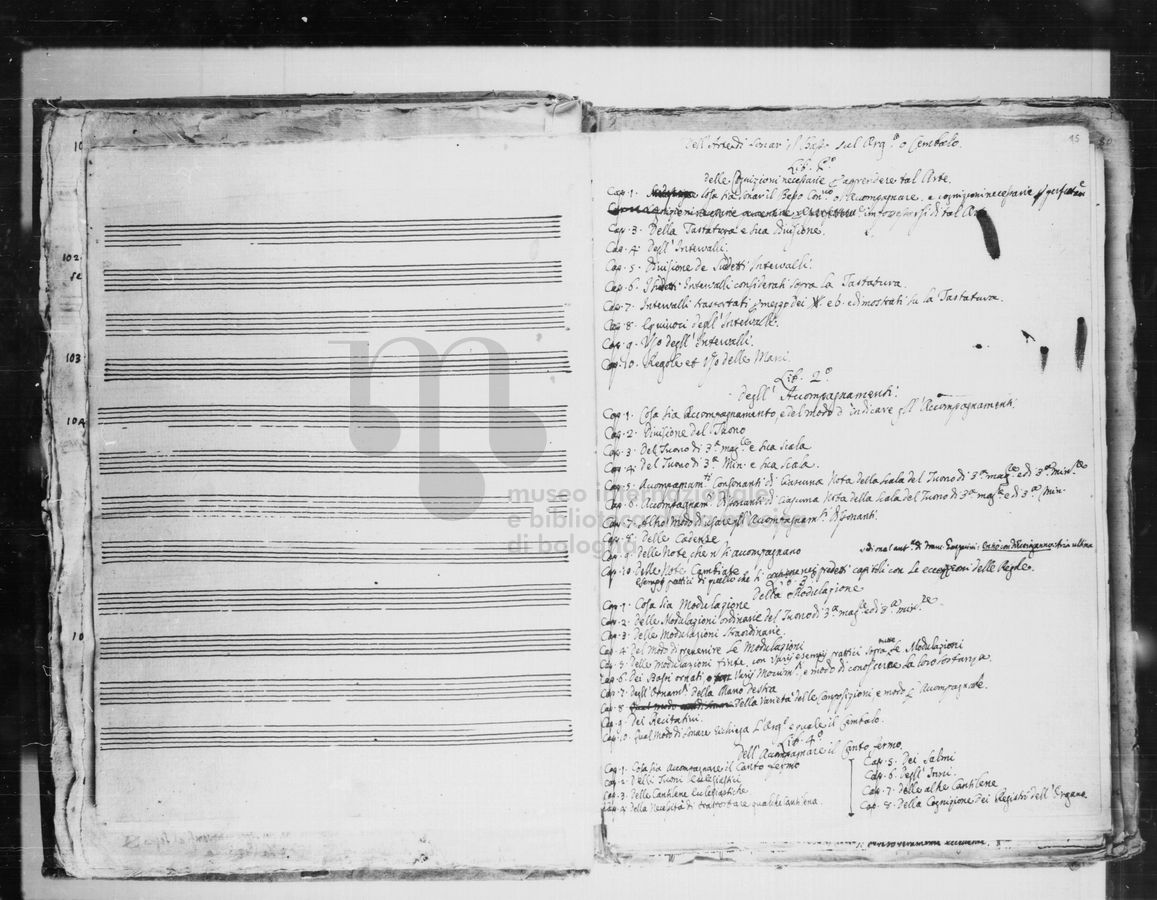 10
102
se
103
10A
10
45
50
Dell'Arte di Sonar il Basso sul Org.º o Cembalo.
Lib. P.º
delle Cognizioni necessarie p apprendere tal Arte.
Cap. 1. Cosa sia sonar il Basso Con.uo o sia Accompagnare, e cognizioni necessarie
impossessarsi di tal Arte
Cap. 3. Della Tastatura e sua divisione.
Cap. 4. Degl'Intervalli.
Cap. 5. Divisione de Sudetti Intervalli.
Cap. 6. Intervalli considerati sopra la Tastatura.
Cap. 7. Intervalli trasportati p mezzo dei # e b. e dimostrati su la Tastatura.
Cap. 8. Equivoci degl'Intervalli.
Cap. 9. Uso degl'Intervalli.
Cap. 10. Regole et Uso delle Mani
Lib. 2.º
Degli Accompagnamenti.
Cap. 1. Cosa sia Accompagnamento, e del modo d'indicare gl'Accompagnamenti.
Cap. 2. Divisione del Tuono
Cap. 3. Del Tuono di 3.ª mag.re e sua scala
Cap. 4. Del Tuono di 3.ª Min. e sua scala.
Cap. 5. Accompagnam.ti Consonanti di Ciascuna Nota della scala del Tuono di 3.ª mag.re e di 3.ª min.re
Cap. 6. Accompagnam. Dissonanti di Ciascuna Nota della scala del Tuono di 3.ª mag.re e di 3.ª Min.
Cap. 7. Altro modo di usare gl'Accompagnam.ti dissonanti.
Cap. 8. Delle Cadenze
Cap. 9. Delle Note che n si accompagnano
Cap. 10. Delle Note Cambiate
esempj prattici di quello che si capitoli con le eccezzioni delle Regole.
Lib. 3.º
Della Modulazione
Cap. 1. Cosa sia Modulazione
Cap. 2. Delle Modulazioni ordinarie del Tuono di 3.ª mag.re e di 3.ª min.re
Cap. 3. Delle Modulazioni straordinarie
Cap. 4. Del Modo di prevenire le Modulazioni
Cap. 5. Delle Modulazioni finte, con varij esempj prattici sopra tutte le Modulazioni
Cap. 6. Dei Bassi ornati Varij Movim.ti e modo di conoscerne la loro sostanza
Cap. 7. Dell'Ornam.ti della Mano destra
Cap. 8. Della Varietà delle Composizioni e modo p Accompagnarle.
Cap. 9. Dei Recitativi.
Cap. 10. Qual Modo di Sonare richiega L'Org.º e quale il Cembalo.
Lib. 4.º
Dell'Accompagnare il Canto fermo
Cap. 1. Cosa sia Accompagnare il Canto fermo
Cap. 2. Delli Tuoni Eclesiastici
Cap. 3. Delle Cantilene Eclesiastiche
Cap. 4. Della Necessità di trasportare qualche Cantilena.
Cap. 5. Dei Salmi
Cap. 6. Degl'Inni.
Cap. 7. delle altre Cantilene
Cap. 8. Della Cognizione dei Registri dell'Organo
museo internazionale
e biblioteca della musica
di bologna